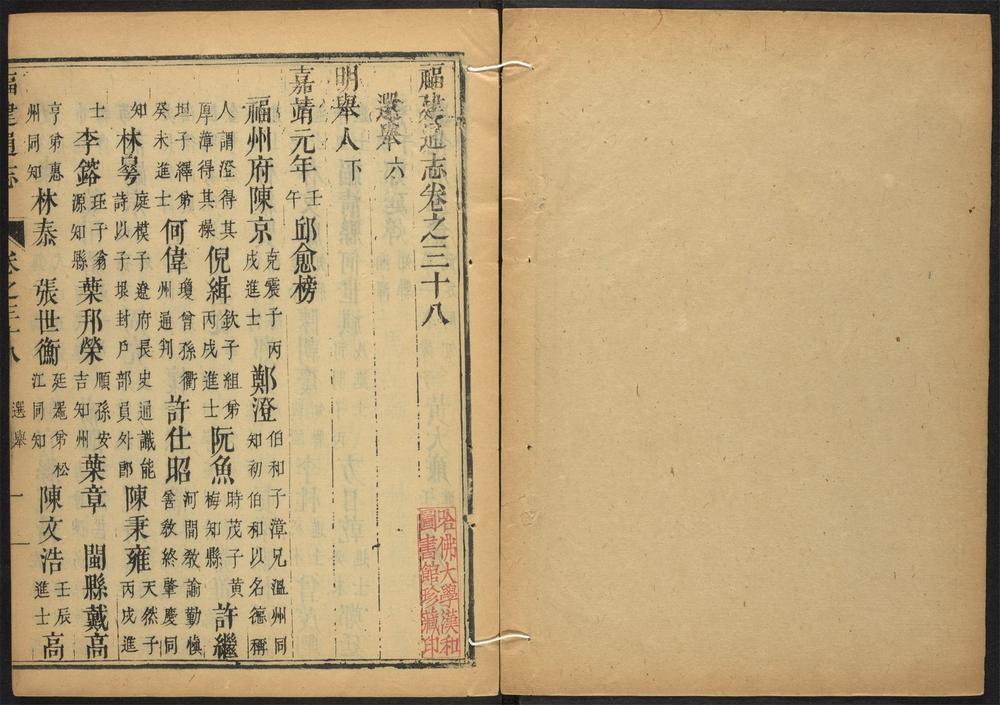 福建通志卷之三十八
選舉六
明舉人下
嘉靖元年壬午邱愈榜
福州府陳京克震子丙戌進士鄭澄伯和子漳兄溫州同知初伯和以名德稱
人謂澄得其厚漳得其操倪緝欽子組弟丙戌進士阮魚時茂子黃梅知縣許繼
坦子繹弟癸未進士何偉瓊曾孫衢州通判許仕昭河間教諭勤慎善教終肇慶同
知林庭模子遼府長史通識能詩以子垠封戶部員外郎陳秉雍天然子丙戌進
士李鎔珏子翁源知縣葉邦榮順孫安吉知州葉章閩縣戴高
亨弟惠州同知林泰張世衡廷羆弟松江同知陳文浩壬辰進士高
福建通志卷之三十八選舉一
哈佛大學漢和圖書館珍藏印